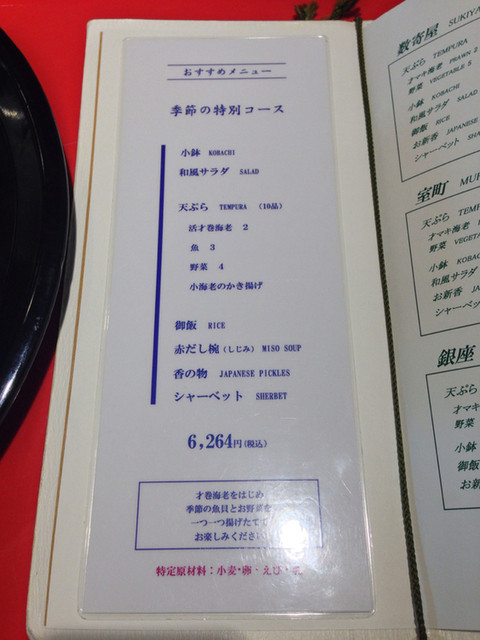 おすすめメニュー
季節の特別コース
小鉢 KOBACHI
和風サラダ SALAD
天ぷら TEMPURA (10品)
活才巻海老 2
魚 3
野菜 4
小海老のかき揚げ
御飯 RICE
赤だし椀(しじみ) MISO SOUP
香の物 JAPANESE PICKLES
シャーベット SHERBET
6,264円(税込)
才巻海老をはじめ
季節の魚貝とお野菜を
一つ一つ揚げたて
お楽しみください
特定原材料:小麦・卵・えび・
数寄屋 SUKIYA
天ぷら TEMPURA
オマキ海老 PRAWN 2
野菜 VEGETABLE 5
小鉢 KOBACHI
和風サラダ SALAD
御飯 RICE
お新香 JAPANESE
シャーベット
室町
天ぷら
オマキ海老
野菜
小鉢 KOBACHI
和風サラダ
お新香
シャーベット
銀座
天ぷら
オマ
野菜
小鉢
御飯
お新